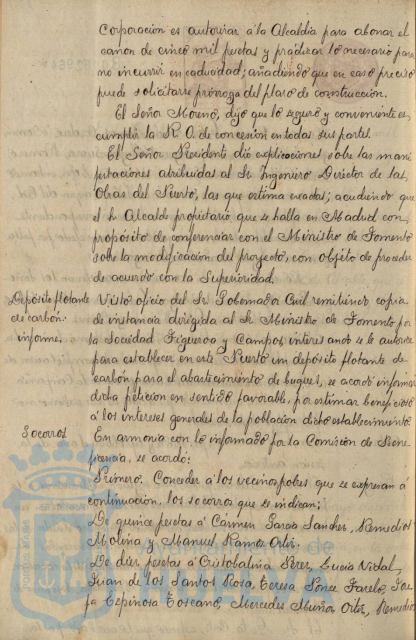 Corporación es autorizar á la Alcaldía para abonar el
canon de cinco mil pesetas y practicar lo necesario para
no incurrir en caducidad; añadiendo que en caso preciso
puede solicitarse prórroga del plazo de construcción.
El Señor Moreno, dijo que lo seguro y conveniente es
cumplir la R. O. de concesión en todas sus partes.
El Señor Presidente dió explicaciones sobre las mani-
festaciones atribuidas al Sr. Ingeniero Director de las
Obras del Puerto, las que estima exactas; añadiendo que
el Sr. Alcalde propietario que se halla en Madrid con
propósito de conferenciar con el Ministro de Fomento
sobre la modificación del proyecto, con objeto de proceder
de acuerdo con la Superioridad.
Depósito flotante
de carbón:
informe.
Visto oficio del Sr. Gobernador Civil remitiendo copia
de instancia dirigida al Sr. Ministro de Fomento por
la Sociedad Figueroa y Campos interesando se le autorice
para establecer en este Puerto un depósito flotante de
carbón para el abastecimiento de buques, se acordó informar
dicha petición en sentido favorable, por estimar beneficioso
á los intereses generales de la población dicho establecimiento
Socorros
En armonía con lo informado por la Comisión de Bene-
ficencia, se acordó:
Primero. Conceder á los vecinos pobres que se expresan á
continuación, los socorros que se indican;
De quince pesetas á Cármen García Sanchez, Remedios
Molina y Manuel Ramos Ortiz.
De diez pesetas á Cristobalina Perez, Lucia Vidal,
Juan de los Santos Rosa, Teresa Ponce Farelo, Jose-
fa Espinosa Toscano, Mercedes Muñoz Ortiz, Remedios